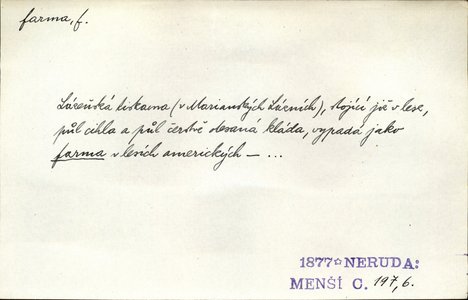 farma, f.
Lázeňská tiskárna (v Marianských Lázních), stojící již v lese,
půl cihla a půl čerstvě tesaná kláda, vypadá jako
farma v lesích amerických – ...
1877☆NERUDA:
MENŠÍ C. 197,6.